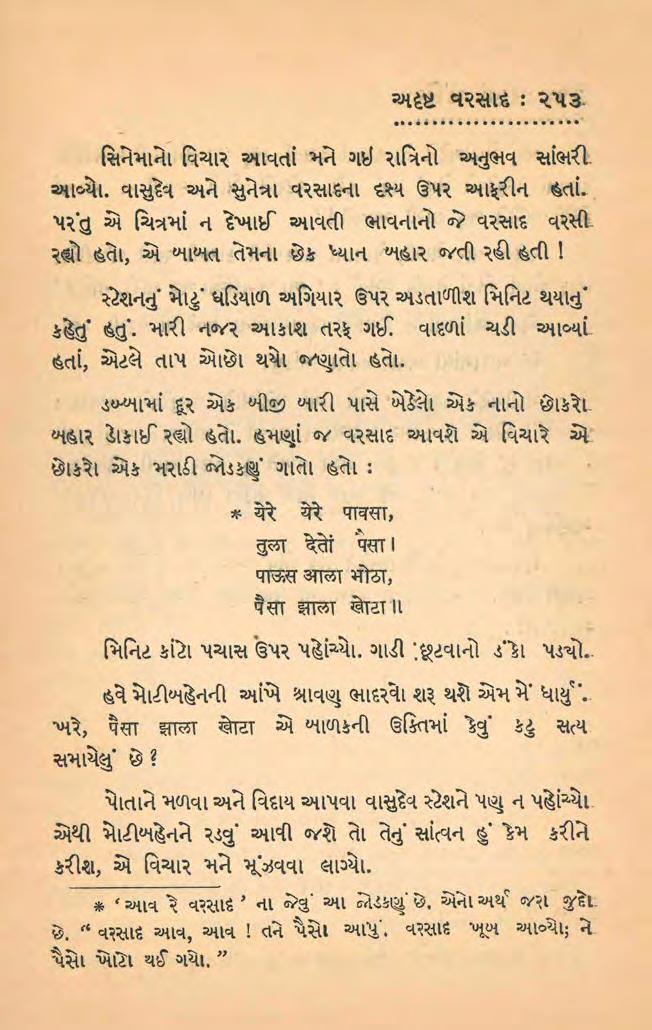 અદૃષ્ટ વરસાદ : ૨૫૩
સિનેમાનો વિચાર આવતાં મને ગઈ રાત્રિનો અનુભવ સાંભરી
આવ્યો. વાસુદેવ અને સુનેત્રા વરસાદના દૃશ્ય ઉપર આફરીન હતાં.
પરંતુ એ ચિત્રમાં ન દેખાઈ આવતી ભાવનાનો જે વરસાદ વરસી
રહ્યો હતો, એ બાબત તેમના છેક ધ્યાન બહાર જતી રહી હતી !
સ્ટેશનનું મોટું ઘડિયાળ અગિયાર ઉપર અડતાળીશ મિનિટ થયાનું
કહેતું હતું. મારી નજર આકાશ તરફ ગઈ. વાદળાં ચડી આવ્યાં
હતાં, એટલે તાપ ઓછો થયો જણાતો હતો.
ડબ્બામાં દૂર એક બીજી બારી પાસે બેઠેલો એક નાનો છોકરો
બહાર ડોકાઈ રહ્યો હતો. હમણાં જ વરસાદ આવશે એ વિચારે એ
છોકરો એક મરાઠી જોડકણું ગાતો હતો :
* येरे येरे पावसा,
तुला देतों पैसा।
पाऊस आला मोठा,
पैसा झाला खोटा॥
મિનિટ કાંટો પચાસ ઉપર પહોંચ્યો. ગાડી છૂટવાનો ડંકો પડ્યો.
હવે મોટીબહેનની આંખે શ્રાવણ ભાદરવો શરૂ થશે એમ મેં ધાર્યું.
ખરે, पैसा झाला खोटा એ બાળકની ઉક્તિમાં કેવું કટુ સત્ય
સમાયેલું છે?
પોતાને મળવા અને વિદાય આપવા વાસુદેવ સ્ટેશને પણ ન પહોંચ્યો
એથી મોટીબહેનને રડવું આવી જશે તો તેનું સાંત્વન હું કેમ કરીને
કરીશ, એ વિચાર મને મૂંઝવવા લાગ્યો.
* ‘ આવ રે વરસાદ ’ ના જેવું આ જોડકણું છે. એનો અર્થ જરા જુદો
છે. “ વરસાદ આવ, આવ ! તને પૈસો આપું. વરસાદ ખૂબ આવ્યો; ને
પૈસો ખોટો થઈ ગયો. ”